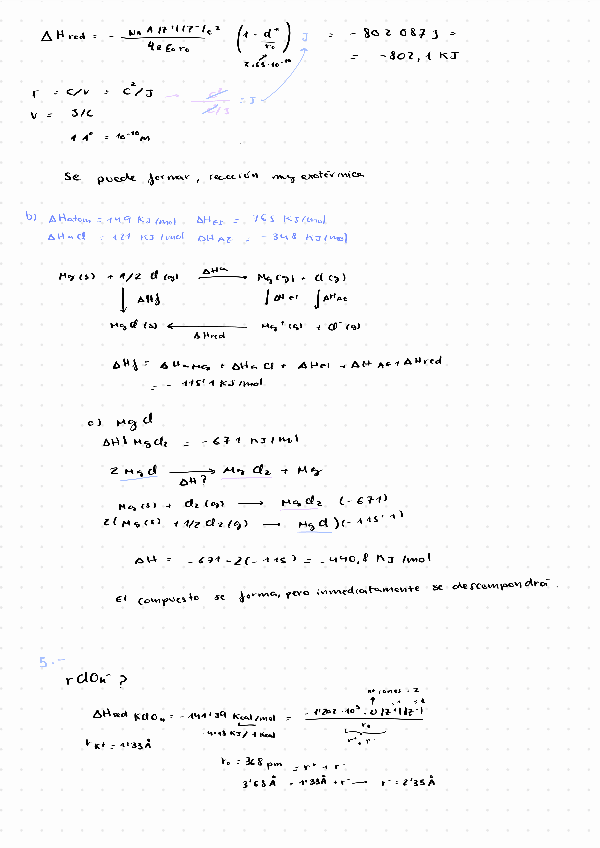 ΔHred = - NA A |Z+||Z-| e² / 4π ε0 r0 (1 - d*/r0) J = - 802 087 J =
2.65·10⁻¹⁰ = -802,1 KJ
r = C/V = C²/J → C²/C²/J = J
V = J/C
1 Aº = 10⁻¹⁰ m
Se puede formar, reacción muy exotérmica
b) ΔHatom = 149 KJ/mol ΔHEI = 765 KJ/mol
ΔHaCl = 121 KJ/mol ΔHAE = -348 KJ/mol
Mg(s) + 1/2 Cl (g) ΔHa → Mg(g) + Cl(g)
↓ ΔHf ↓ΔHei ↓ΔHAE
MgCl(s) ← Mg⁺(g) + Cl⁻(g)
ΔHred
ΔHf = ΔHaMg + ΔHaCl + ΔHei + ΔHAE + ΔHred
= - 115'1 KJ/mol
c) MgCl
ΔHf MgCl2 = -671 KJ/mol
2 MgCl → MgCl2 + Mg
ΔH?
Mg(s) + Cl2(g) → MgCl2 (-671)
2(Mg(s) + 1/2 Cl2(g) → MgCl)(-115'1)
ΔH = -671 - 2(-115) = -440,8 KJ/mol
El compuesto se forma, pero inmediatamente se descompondrá.
5.-
rClO4⁻ ?
nº iones = 2
ΔHred KClO4 = -141'39 Kcal/mol = -1'202·10³·ν|Z+||Z-| / r0
4'18 KJ/1 Kcal
r⁺ + r⁻
rK+ = 1'33 Å
r0 = 368 pm = r⁺ + r⁻
3'68 Å = 1'33 Å + r⁻ → r⁻ = 2'35 Å